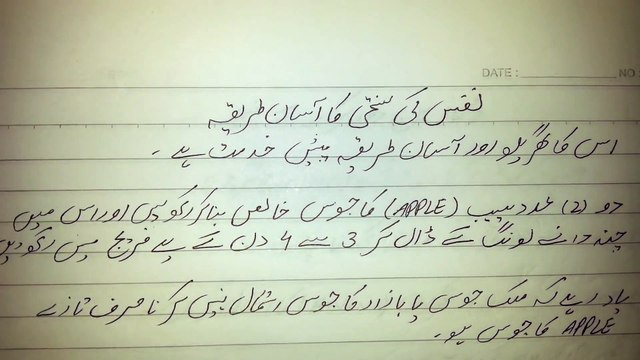 DATE : NO
نفس کی سختی کا آسان طریقہ
اس کا گھریلو اور آسان طریقہ پیش خدمت ہے ۔
دو (2) عدد سیب (APPLE) کا جوس خالص بنا کر رکھ لیں اور اس میں
چند دانے لونگ کے ڈال کر 3 سے 4 دن کے لیے فریج میں رکھ دیں
یاد رہے کہ ملک جوس یا بازار کا جوس استمال نہیں کرنا صرف تازے
APPLE کا جوس ہو۔